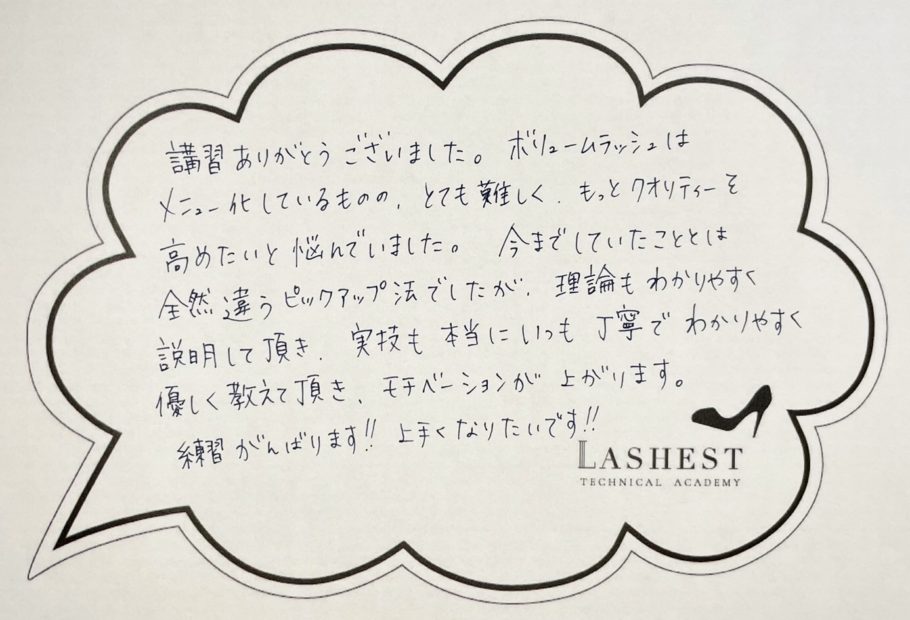 講習ありがとうございました。 ボリュームラッシュは
メニュー化しているものの、とても難しく、もっとクオリティーを
高めたいと悩んでいました。 今までしていたこととは
全然違うピックアップ法でしたが、理論もわかりやすく
説明して頂き、実技も本当にいつも丁寧でわかりやすく
優しく教えて頂き、モチベーションが上がります。
練習がんばります!! 上手くなりたいです!!
LASHEST
TECHNICAL ACADEMY